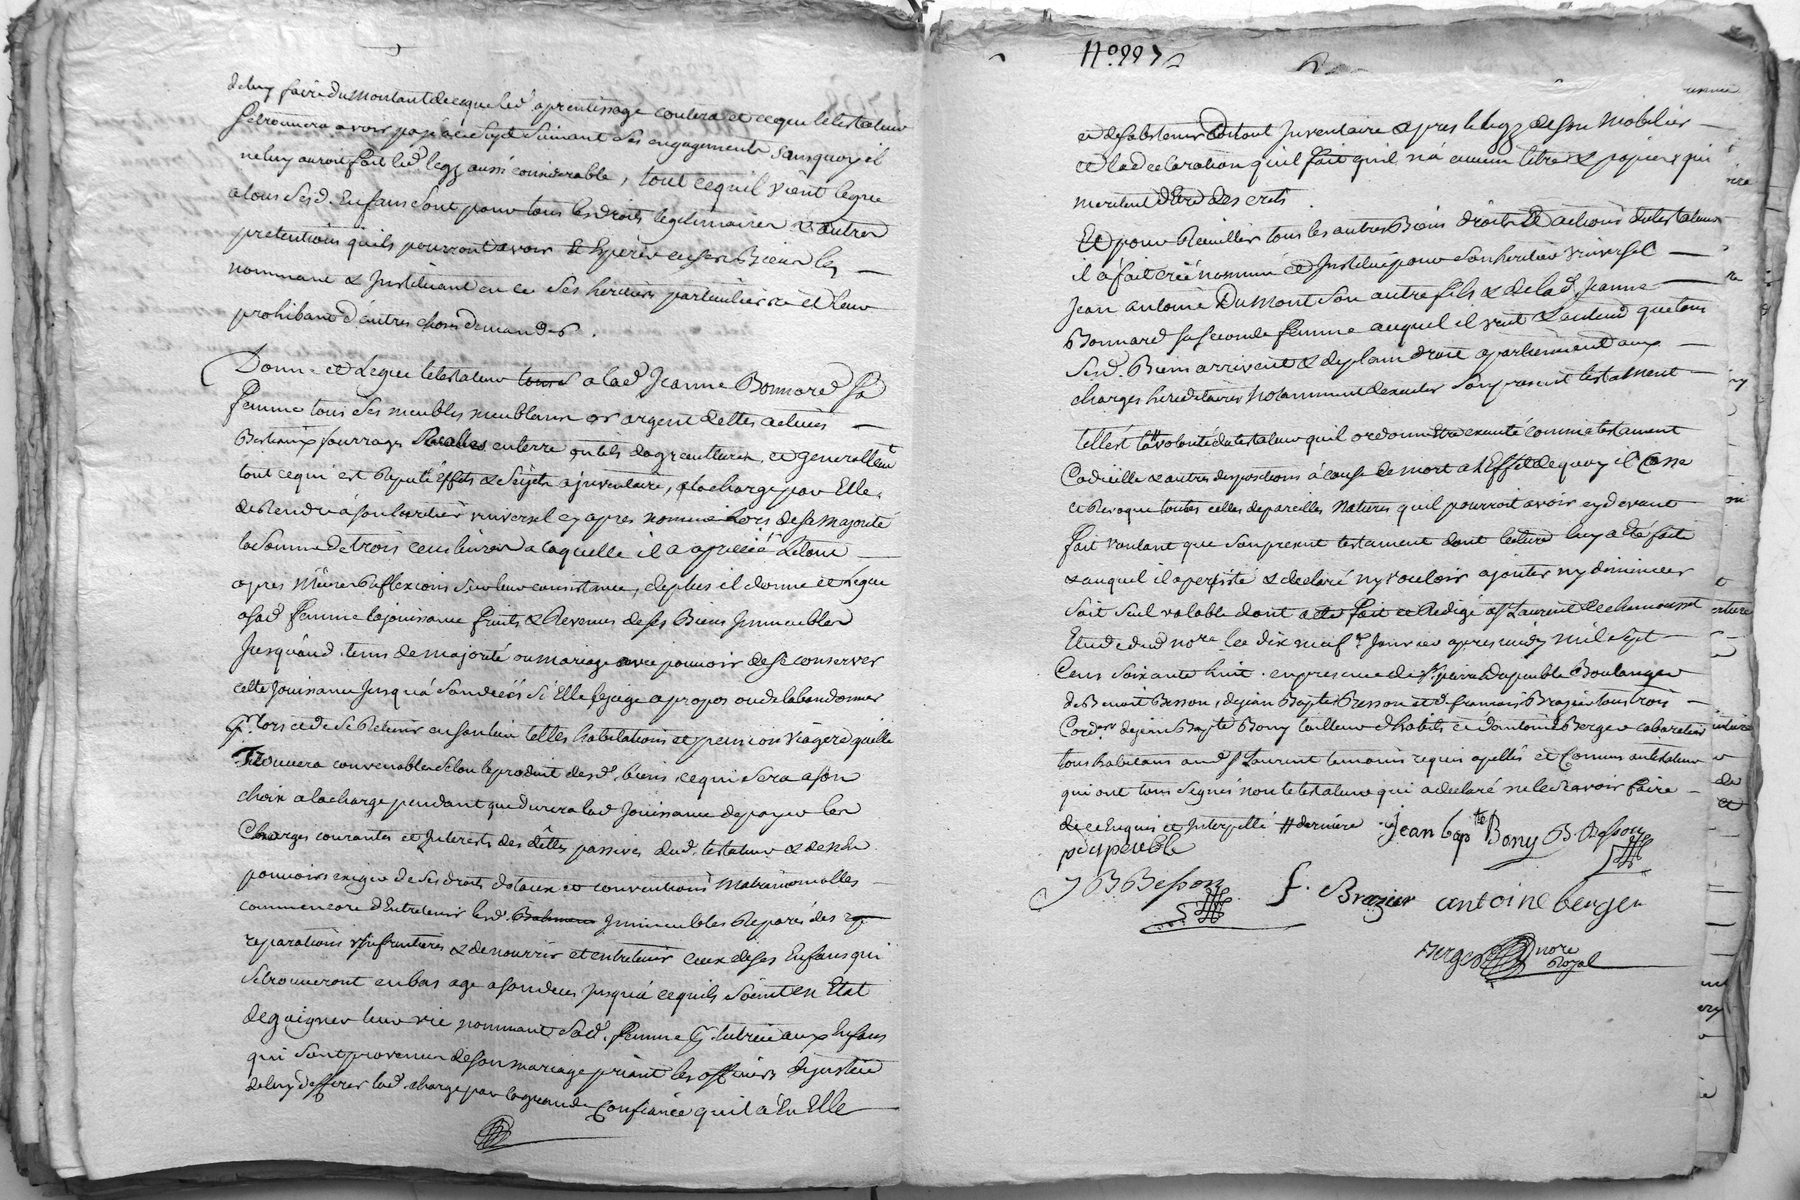 de luy faire du montant de ce que led aprentissage coutera et ce que le testateur
se trouvera avoir payé à ce sujet suivant ses engagements sans quoy il
ne luy auroit fait led legs aussi considerable, tout ce qu'il vient legue
a tous sesd. Enfans sont pour tous les droits legitimaires & autres
pretentions quils pourront avoir et Esperer en ses Biens les
nommant & Instituant en ce ses heritiers particuliers et leur
prohibant d'autres choses demander.
Donne et Legue le testateur a lad Jeanne Bonnard sa
femme tous ses meubles meublans or argent dettes actives
Bestiaux fourrages Recoltes en terre outils dagriculture, et generallemt
tout ce qui est Reputé effets & Sujets a jnventaire, a la charge par Elle
de Rendre à son heritier universel cy apres nommé Lors de sa majorité
la somme de trois cens livres a laquelle il a aprecié Letout
apres Mûres Reflexions sur leur consistance, de plus il donne et Legue
a sad femme la jouissance fruits & Revenus de ses Biens Jmmeubles
Jusqu'aud. tems de majorité ou mariage avec pouvoir de se conserver
cette Jouissance Jusqu'à son decés si Elle le juge a propos ou de labandonner
& lors de se Retenir en son lieu telles habitations et pension viagere quelle
Trouvera convenables selon le produit desd. biens, ce qui sera a son
choix a la charge pendant que durera lad Jouissance de payer les
Charges courantes et Interests des dêttes passives dud. testateur &
pouvoir exiger de ses droits dotaux et conventions Matrimonialles
comm encore d'Entretenir lesd. Jmmeubles Reparés des
reparations usufruitieres & de nourrir et entretenir ceux de ses Enfans qui
se trouveront en bas age a son deces jusqu'à ce quils soient en Etat
de gaigner leur vie, nommant sad. femme tutrice aux Enfans
qui sont provenus de son mariage priant les officiers de justice
de luy defferer lad. charge par la grande Confiance quil à En Elle
No. 99
et de sabstenir de tout Jnventaire apres le legs de son mobilier
et la declaration qu'il fait quil n'a aucun titre & papiers qui
meritent d'Etre descrits.
Et pour Recuillir tous les autres Biens droits Et actions du testateur
il a fait créé nommé et Institué pour son heritier universel
Jean antoine Dumont son autre fils & de lad. Jeanne
Bonnard sa seconde femme auquel il veut & entend que tous
sesd. Biens arrivent & de plain droit apartiennent aux
charges hereditaires notamment dexecuter son present testament
telle est la volonté du testateur quil ordonne Etre executé comme testament
Codicille & autres dispositions à cause de mort a l'Effet de quoy il Casse
et Revoque toutes celles de pareilles Natures quil pourroit avoir cy devant
fait voulant que son present testament dont lecture luy a Eté faite
& auquel il a persisté & declaré ny vouloir ajouter ny diminuer
soit seul valable dont acte fait et Redigé a St Laurent de chamousset
Etude dud nore le dix neuf Janvier apres midy mil sept
Cens soixante huit. en presence de Sr. pierre Dupeuble Boulanger
de Benoit Besson, de jean Bapte Besson et de francois Brazier tous trois
Cordrs de jean Bapte Bony tailleur d'habits et d'antoine Berger cabaretier
tous habitans aud St Laurent temoins requis apellés et Connus au testateur
qui ont tous signés non le testateur qui a declaré ne le scavoir faire
de ce Enquis et Interpellé derniere jean bapte Bony B Besson
p Dupeuble
J B Besson f. Brazier antoine berger
Berger nore
Royal